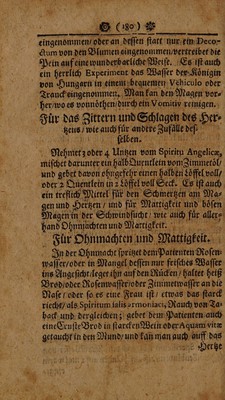 (180)
eingenommen/oder an dessen statt nur ein Deco-
ctum von den Blumen eingenommen/vertreibet die
Pein auf eine wunderbarliche Weise. Es ist auch
ein herrlich Experiment das Wasser der Königin
von Hungarn in einem bequemen Vehiculo oder
Tranck eingenommen. Man kan den Magen vor-
her/wo es vonnöthen/durch ein Vomitiv reinigen.
Für das Zittern und Schlagen des Her-
tzens/wie auch für andere Zufälle des-
selben.
Nehmet 3 oder 4 Untzen vom Spiritu Angelicæ,
mischet darunter ein halb Quentlein von Zimmetöl/
und gebet davon ohngefehr einen halben Löffel voll/
oder 2 Quentlein in 2 Löffel voll Seck. Es ist auch
ein treflich Mittel für den Schmertzen am Ma-
gen und Hertzen/ und für Mattigkeit und bösen
Magen in der Schwindsucht/ wie auch für aller-
hand Ohnmachten und Mattigkeit.
Für Ohnmachten und Mattigkeit.
In der Ohnmacht spritzet dem Patienten Rosen-
wasser/oder in Mangel dessen nur frisches Wasser
ins Angesicht/leget ihn auf den Rücken/ haltet heiß
Brod/oder Rosenwasser/oder Zimmetwasser an die
Nase/ oder so es eine Frau ist/ etwas das starck
riecht/als Spiritum salis armoniaci, Rauch von Ta-
back und dergleichen; gebet dem Patienten auch
eine Cruste Brod in starcken Wein oder Aquam vitæ
getaucht in den Mund/ und kan man auch auff das
Hertze